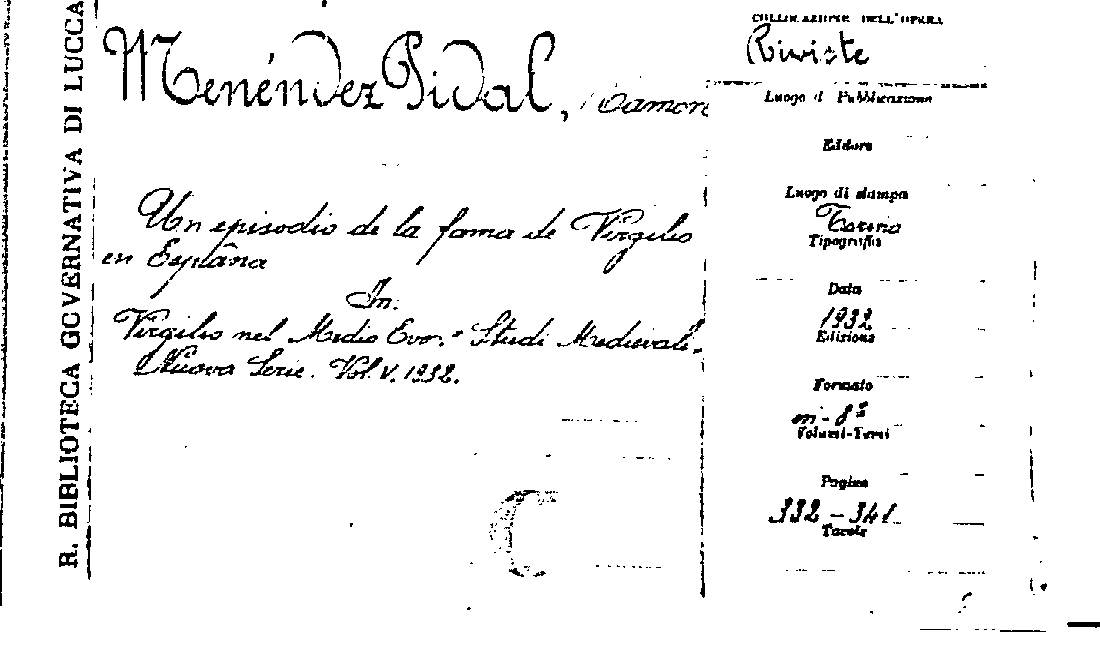 R. BIBLIOTECA GOVERNATIVA DI LUCCA
Menéndez Pidal, Ramon
Un episodio de la fama de Virgilio
en Espâna
In:
Virgilio nel Medio Evo. - Studi Medievali -
Nuova Serie. Vol. V. 1932.
C
COLLOCAZIONE DELL'OPERA
Riviste
Luogo di Pubblicazione
Editore
Luogo di stampa
Torino
Tipografia
Data
1932
Edizione
Formato
in-8º
Volumi-Tomi
Pagine
332-341
Tavole